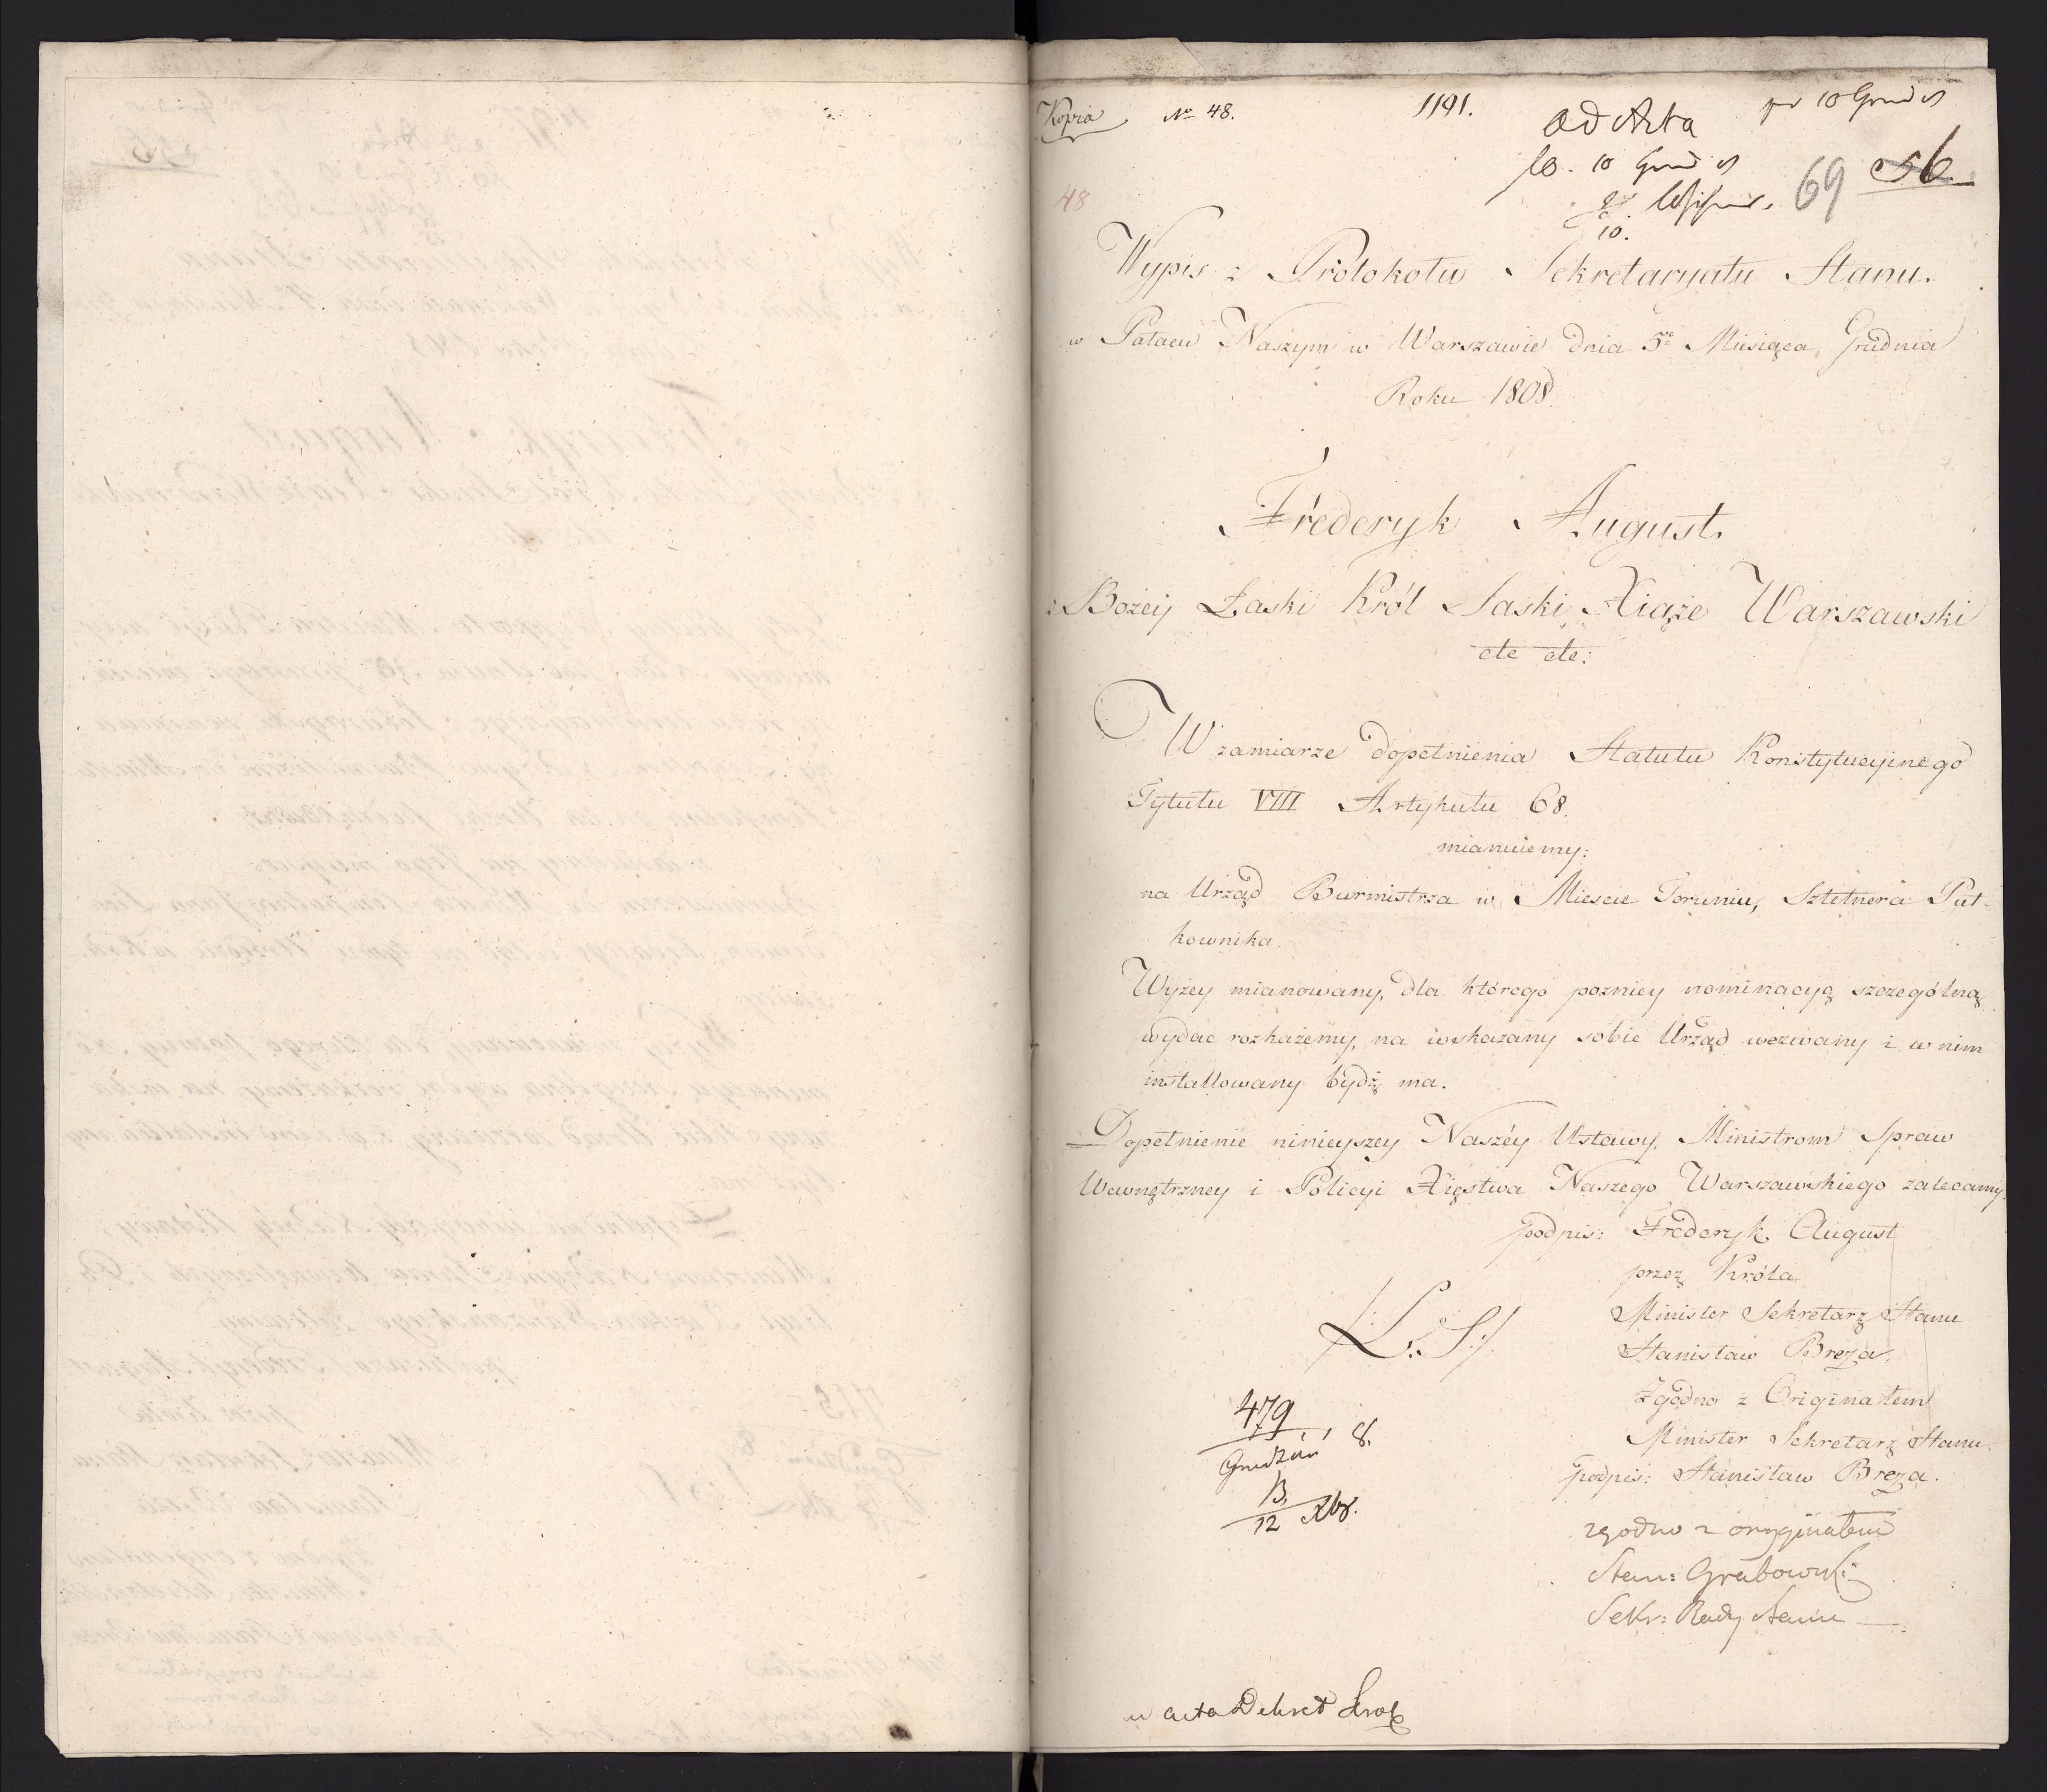 Kopia № 48. 1191. Ad Acta pr 10 Grud
10 Grud
69 56.
48
10.
Wypis z Protokołu Sekretaryatu Stanu.
w Pałacu Naszym w Warszawie dnia 5º Miesiąca Grudnia
Roku 1808.
Frederyk August.
z Bożey Łaski Król Saski, Xiąże Warszawski
etc etc:
W zamiarze dopełnienia Statutu Konstytucyinego
Tytułu VIII Artykułu 68.
mianuiemy:
na Urząd Burmistrza w Miescie Toruniu, Sztetnera Puł-
kownika.
Wyżey mianowany, dla którego pozniey nominacyą szczególną
wydac rozkażemy, na wskazany sobie Urząd wezwany i w nim
installowany bydź ma.
Dopełnienie ninieyszey Naszéy Ustawy, Ministrom Spraw
Wewnętrzney i Policyi Xięstwa Naszego Warszawskiego zalecamy.
podpis: Frederyk August
przez Króla
Minister Sekretarz Stanu
/:L:S:/
Stanisław Breza.
Zgodno z Originałem
Minister Sekretarz Stanu.
podpis: Stanisław Breza.
479 8.
Grudzień
B.
12 Xbr.
zgodno z oryginałem
Stan: Grabowski
Sekr: Rady Stanu
w acta Dekret Krol